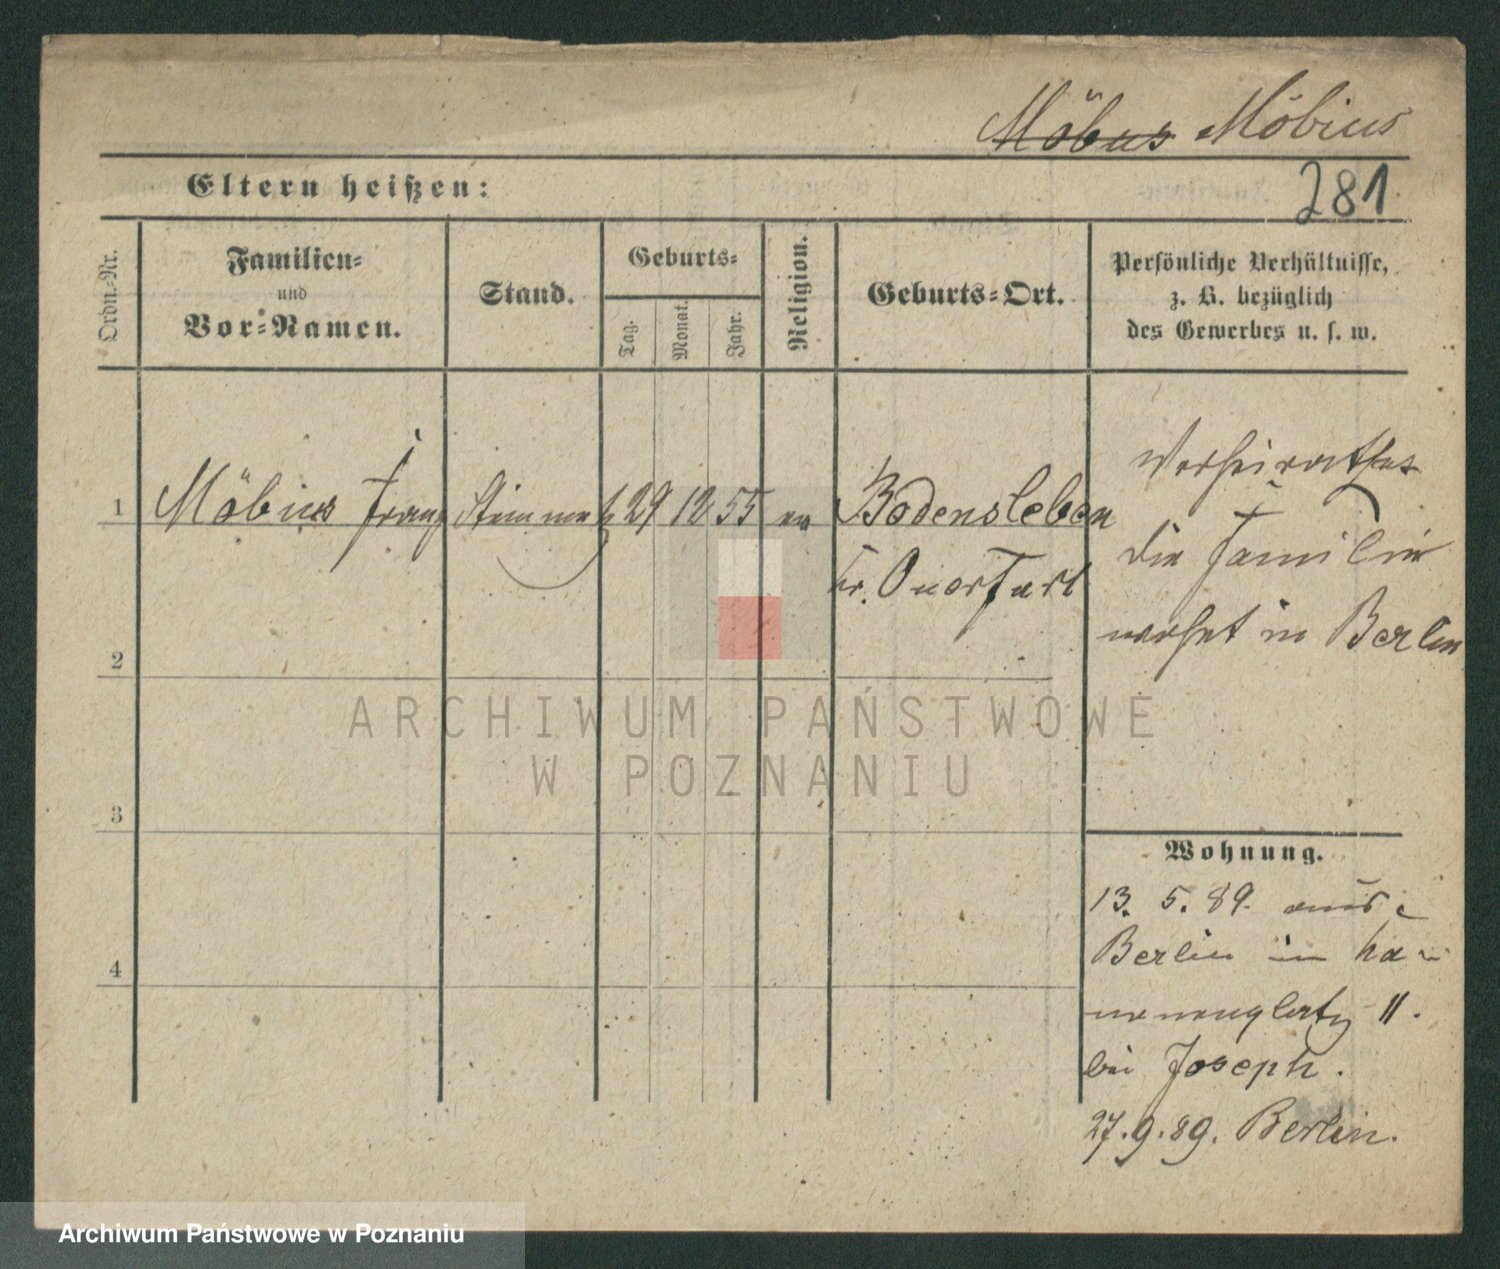 Möbus Möbius
Eltern heißen:
281.
Ordn.-Nr.
Familien-
und
Vor-Namen.
Stand.
Geburts-
Tag.
Monat.
Jahr.
Religion.
Geburts-Ort.
Persönliche Verhältnisse,
z. B. bezüglich
des Gewerbes u. s. w.
1 Möbius Franz Steinmetz 29 12 55 ev Bodensleben
Kr. Querfurt
Verheirathet
die Familie
wohnt in Berlin
2
3
4
Wohnung.
13. 5. 89. aus
Berlin in
11.
bei Joseph.
27. 9. 89. Berlin.
ARCHIWUM PAŃSTWOWE
W POZNANIU
Archiwum Państwowe w Poznaniu